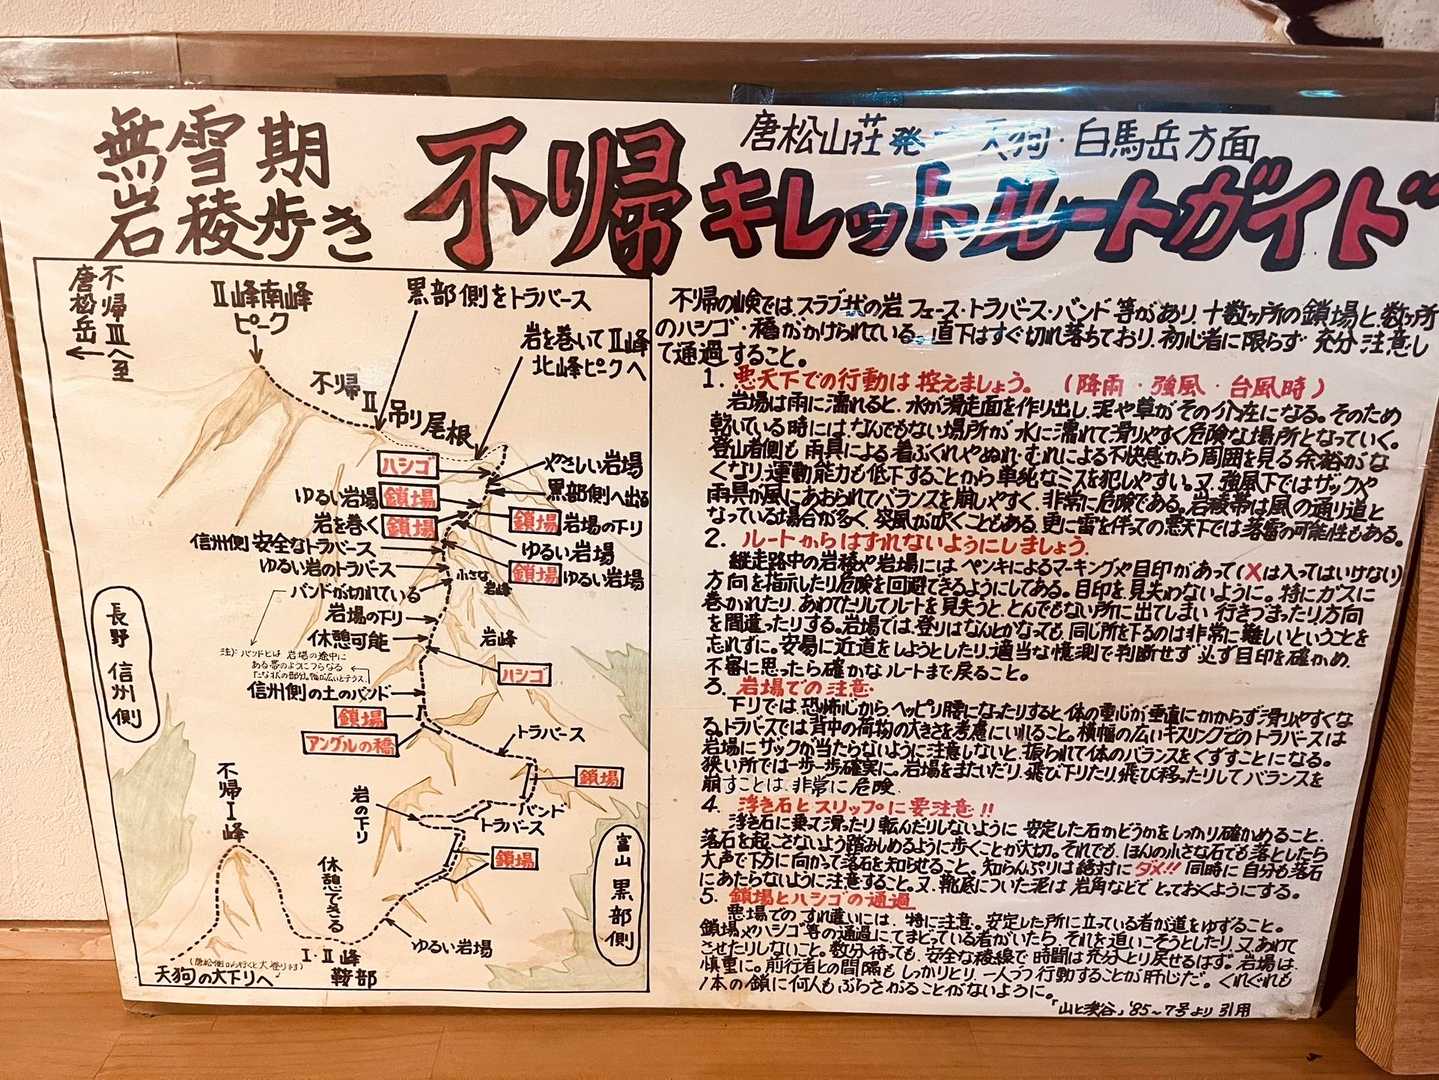 無雪期
岩稜歩き
唐松山荘発→天狗・白馬岳方面
不帰キレットルートガイド
不帰Ⅲへ至
唐松岳←
Ⅱ峰南峰
ピーク
黒部側をトラバース
岩を巻いてⅡ峰
北峰ピークへ
不帰Ⅱ吊り尾根
ハシゴ
やさしい岩場
ゆるい岩場
鎖場
黒部側へ出る
岩を巻く
鎖場
鎖場
岩場の下り
信州側安全なトラバース
ゆるい岩場
ゆるい岩のトラバース
小さな
岩峰
鎖場
ゆるい岩場
バンドが切れている
岩場の下り
休憩可能
岩峰
注:バンドとは 岩場の途中に
ある帯のようにつらなる
ハシゴ
信州側の土のバンド
鎖場
アングルの橋
トラバース
鎖場
岩の下り
バンド
トラバース
鎖場
長野 信州側
富山 黒部側
不帰Ⅰ峰
休憩できる
ゆるい岩場
Ⅰ・Ⅱ峰
鞍部
天狗の大下りへ
不帰の嶮では、スラブ状の岩、フェース・トラバース・バンド等があり、十数ヶ所の鎖場と数ヶ所
のハシゴ・橋がかけられている。直下はすぐ切れ落ちており、初心者に限らず 充分注意し
て通過すること。
1. 悪天下での行動は控えましょう。(降雨・強風・台風時)
岩場は雨に濡れると、水が滑走面を作り出し、泥や草がその介在になる。そのため
乾いている時にはなんでもない場所が、水に濡れて滑りやすく危険な場所となっていく。
登山者側も雨具による着ぶくれやぬれ・むれによる不快感から周囲を見る余裕がな
くなり、運動能力も低下することから単純なミスを犯しやすい。又、強風下ではザックや
雨具が風にあおられてバランスを崩しやすく、非常に危険である。岩稜帯は風の通り道と
なっている場合が多く、突風が吹くこともある。更に雷を伴っての悪天下では落雷の可能性もある。
2. ルートからはずれないようにしましょう。
縦走路中の岩稜や岩場にはペンキによるマーキングや目印があって(×は入ってはいけない)
方向を指示したり危険を回避できるようにしてある。目印を見失わないように。特にガスに
巻かれたり、あわてたりしてルートを見失うと、とんでもない所に出てしまい行きづまったり、方向
を間違ったりする。岩場では、登りはなんとかなっても、同じ所を下るのは非常に難しいということを
忘れずに。安易に近道をしようとしたり、適当な憶測で判断せず必ず目印を確かめ、
不審に思ったら確かなルートまで戻ること。
3. 岩場での注意
下りでは恐怖心からヘッピリ腰になったりすると、体の重心が垂直にかからず滑りやすくな
る。トラバースでは背中の荷物の大きさを考慮にいれること。横幅の広いキスリングでのトラバースは
岩場にザックが当たらないように注意しないと、振られて体のバランスをくずすことになる。
狭い所では一歩一歩確実に。岩場をまたいだり、飛び下りたり、飛び移ったりしてバランスを
崩すことは、非常に危険。
4. 浮き石とスリップに要注意!!
浮き石に乗って滑ったり転んだりしないように安定した石かどうかをしっかり確かめること。
落石を起こさないよう踏みしめるように歩くことが大切。それでも、ほんの小さな石でも落としたら
大声で下方に向かって落石を知らせること。知らんぷりは絶対にダメ!!同時に自分も落石
にあたらないように注意すること。又、靴底についた泥は岩角などでとっておくようにする。
5. 鎖場とハシゴの通過
悪場でのすれ違いには、特に注意。安定した所に立っている者が道をゆずること。
鎖場やハシゴ等の通過にてまどっている者がいたら、それを追いこそうとしたり、又あわて
させたりしないこと。数分待っても、安全な稜線で時間は充分とり戻せるはず。岩場は、
慎重に。前行者との間隔もしっかりとり、一人づつ行動することが肝心だ。くれぐれも
1本の鎖に何人もぶらさがることがないように。
「山と渓谷」'85〜7号より引用